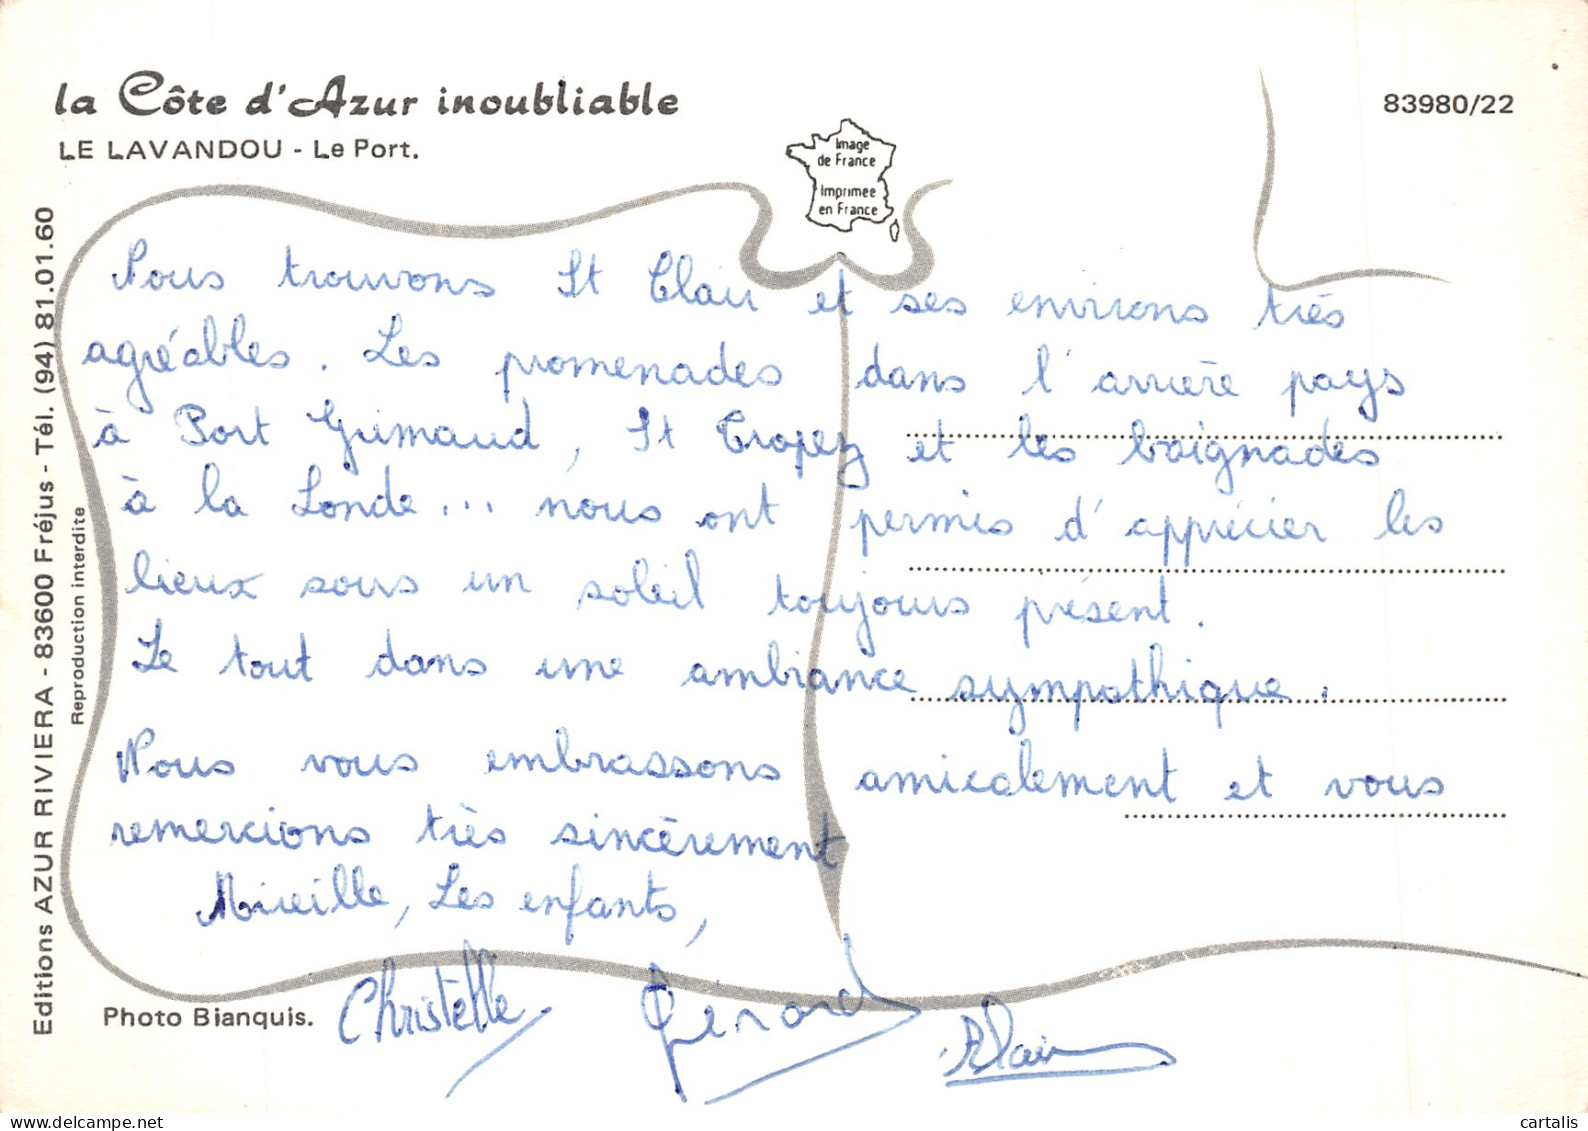 la Côte d'Azur inoubliable
83980/22
LE LAVANDOU - Le Port.
Image
de France
Imprimée
en France
Nous trouvons St Clair et ses environs très
agréables. Les promenades dans l'arrière pays
à Port Grimaud, St Tropez et les baignades
à la Londe... nous ont permis d'apprécier les
lieux sous un soleil toujours présent.
Le tout dans une ambiance sympathique.
Nous vous embrassons amicalement et vous
remercions très sincèrement
Mireille, Les enfants,
Christelle Gérard Alain
Photo Bianquis.
Editions AZUR RIVIERA - 83600 Fréjus - Tél. (94) 81.01.60
Reproduction interdite
cartalis